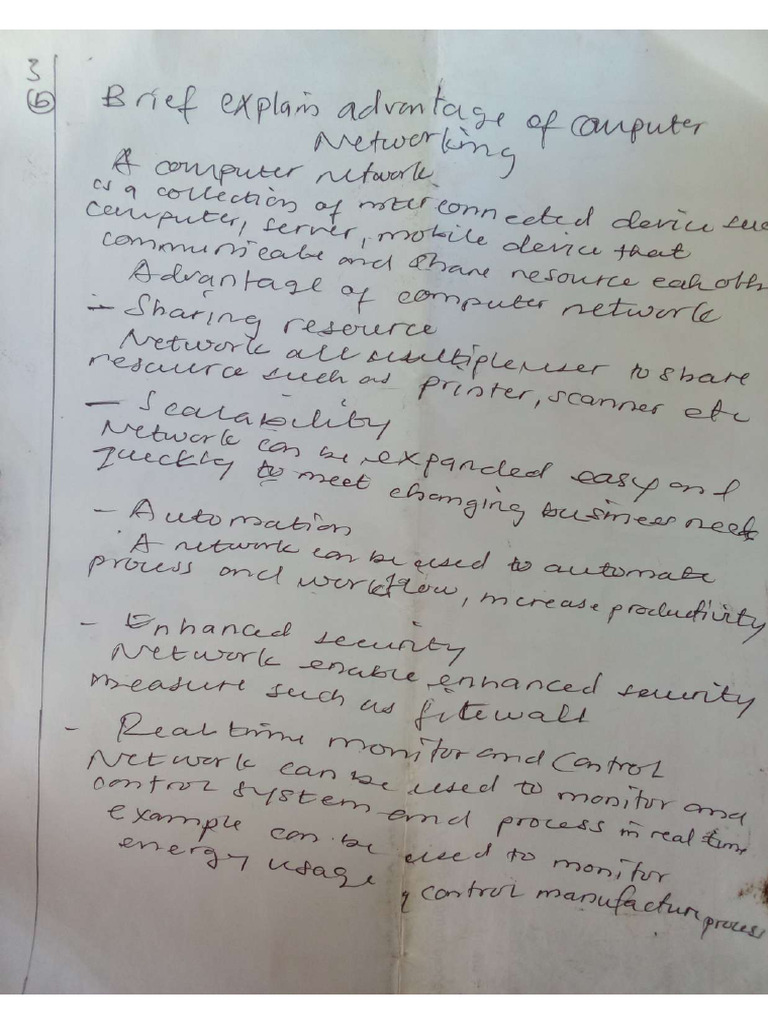 3
(b) Brief explain advantage of computer
Networking
A computer network
is a collection of interconnected device suc
computer, server, mobile device that
communicate and share resource each oth
Advantage of computer network
- Sharing resource
Network all multiple user to share
resource such as printer, scanner etc
- Scalability
Network can be expanded easy and
quickly to meet changing business needs
- Automation
A network can be used to automate
process and workflow, increase productivity
- Enhanced security
Network enable enhanced security
measure such as firewall
- Real time monitor and Control
Network can be used to monitor and
control system and process in real time
example can be used to monitor
energy usage, control manufacture process